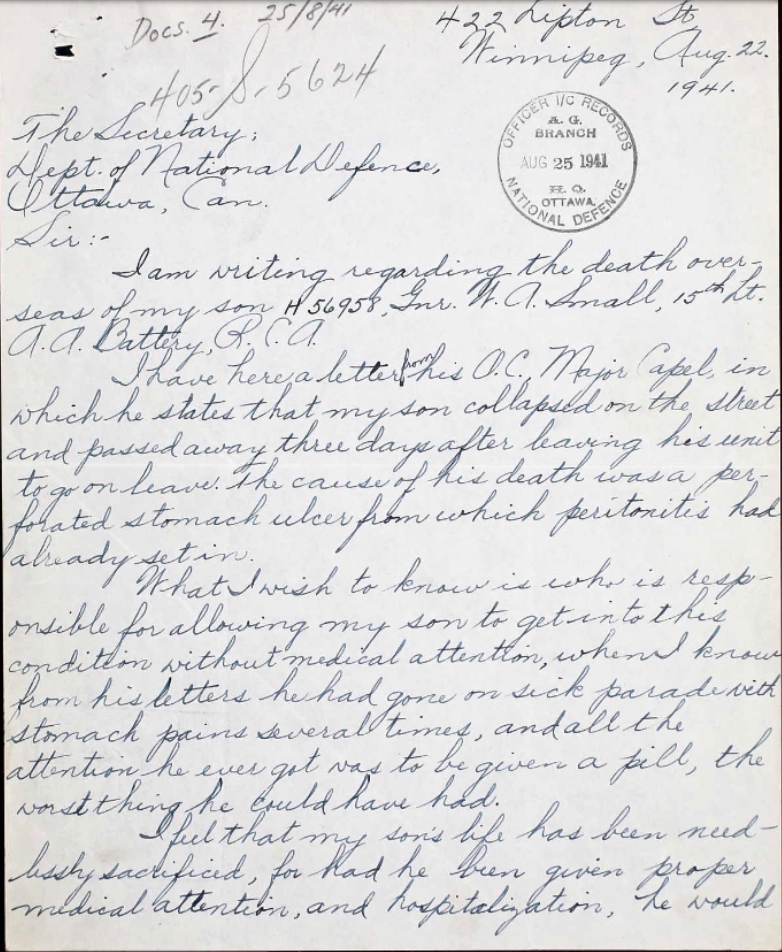 Docs. 4. 25/8/41
422 Lipton St.
Winnipeg, Aug. 22.
1941.
405-S-5624
The Secretary;
Dept. of National Defence,
Ottawa, Can.
Sir:-
OFFICER I/C RECORDS
A. G.
BRANCH
AUG 25 1941
H. Q.
OTTAWA
NATIONAL DEFENCE
I am writing regarding the death over-
seas of my son H 56958, Gnr. W. A. Small, 15th Lt.
A. A. Battery, R. C. A.
I have here a letter from his O.C., Major Capel, in
which he states that my son collapsed on the street
and passed away three days after leaving his unit
to go on leave. The cause of his death was a per-
forated stomach ulcer from which peritonitis had
already set in.
What I wish to know is who is resp-
onsible for allowing my son to get into this
condition without medical attention, when I know
from his letters he had gone on sick parade with
stomach pains several times, and all the
attention he ever got was to be given a pill, the
worst thing he could have had.
I feel that my son's life has been need-
lessly sacrificed, for had he been given proper
medical attention, and hospitalization, he would